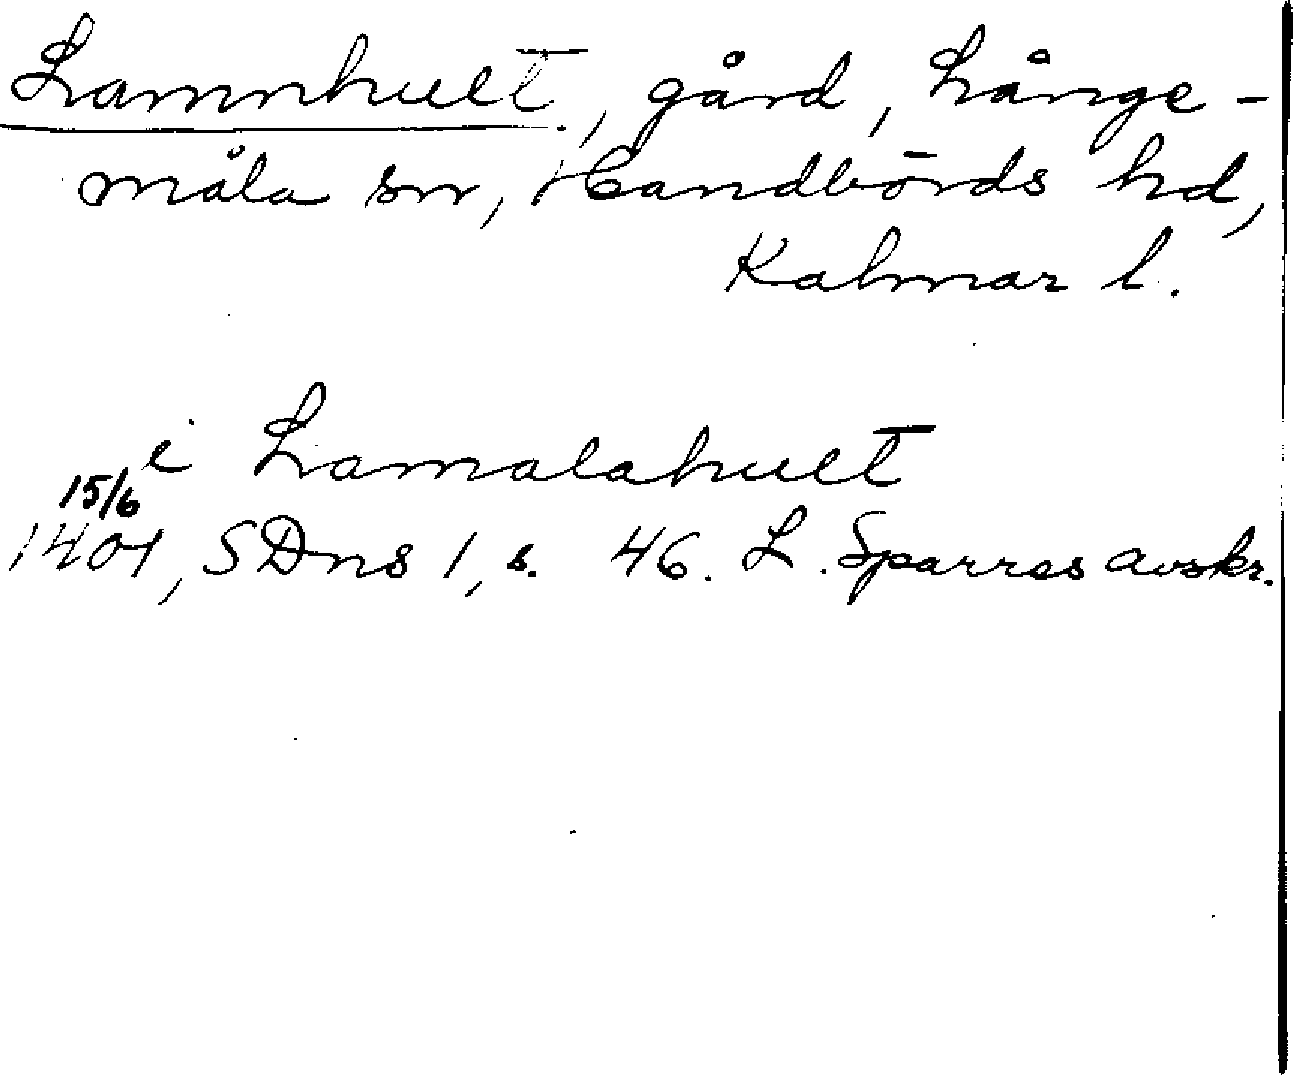 Lamnhult, gård, Långe-
måla sn, Handbörds hd,
Kalmar l.
i Lamalahult
15/6
1401, SDns 1, s. 46. L. Sparres avskr.